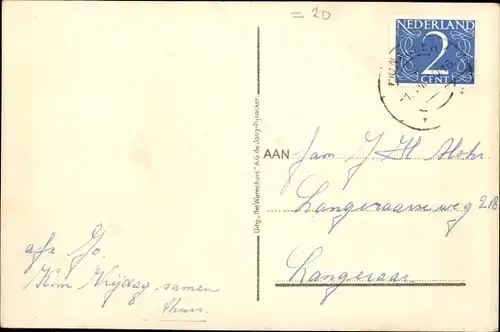 = 20
NEDERLAND
2
CENT
AAN
Fam J H Mohr.
Langeraarseweg 218
Langeraar
afz Jo.
Kom Vrijdag samen
thuis.
Uitg. „Het Warenhuis" A.G. de Jong-Pijnacker